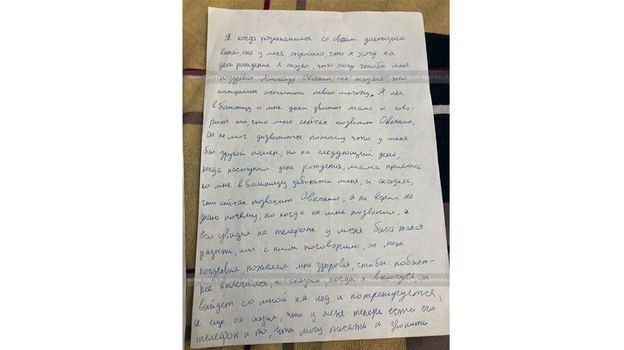 Я когда познакомился со своим доктором
Катей, она у меня спросила, что я хочу на
день рождения я сказал, что хочу чтобы меня
поздравил Александр Овечкин, она сказала, что
постараемся исполнить твою мечту. Я лег
в больницу и мне днём звонит мама и гово-
рит то, что мне сейчас позвонит Овечкин,
он не мог дозвонится потому что у меня
был другой номер, но на следующий день,
когда наступил день рождения, мама приехала
ко мне в больницу забирать меня, и сказала,
что сейчас позвонит Овечкин, я не верил не
знаю почему, но когда он мне позвонил, я
его увидел на телефоне у меня была такая
радость, мы с ним поговорили, он меня
поздравил пожелал мне здоровья, чтобы побыст-
рее вылечился, и сказал, когда я вылечусь он
выйдет со мной на лед и потренируется,
и еще он сказал, что у меня теперь есть его
телефон и то, что могу писать и звонить